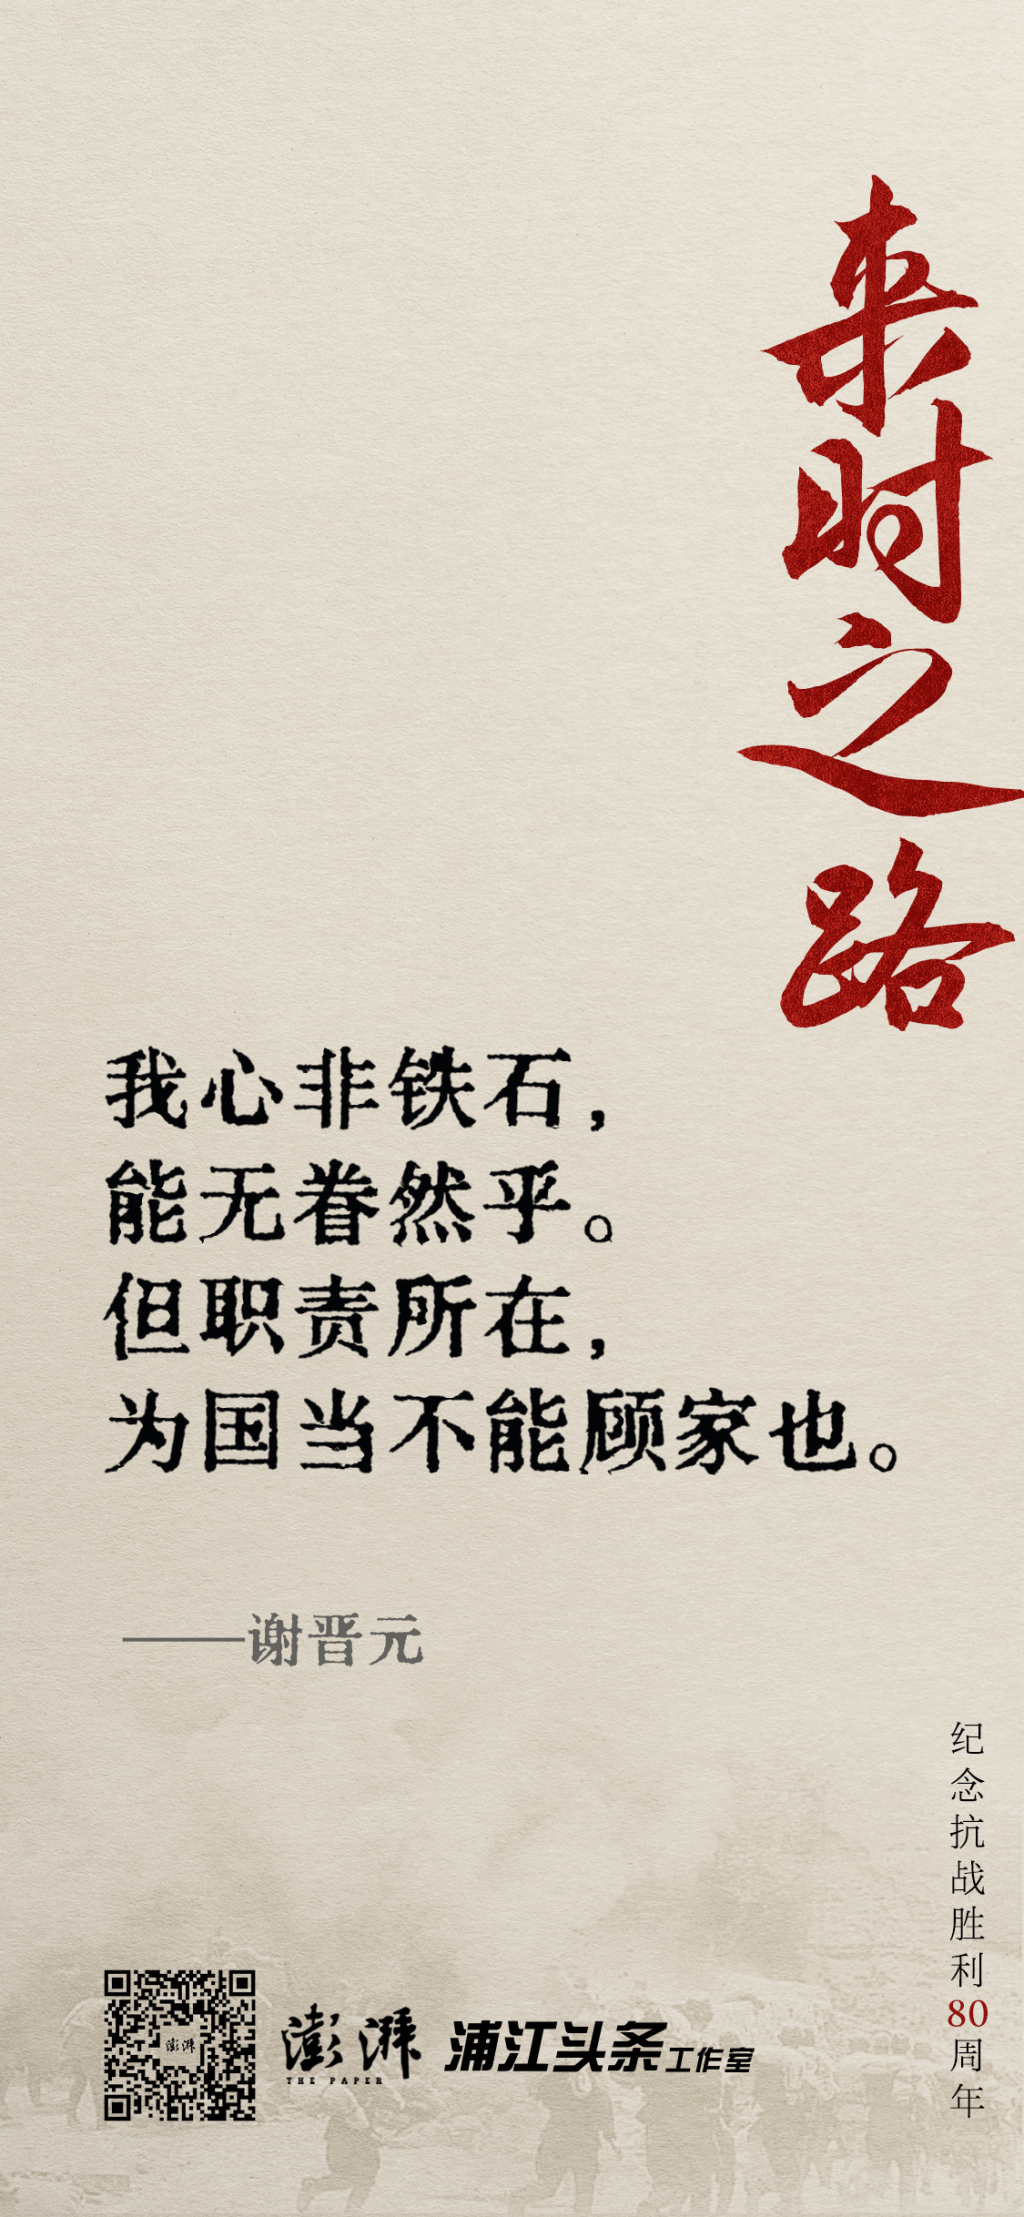 来时之路
我心非铁石，
能无眷然乎。
但职责所在，
为国当不能顾家也。
——谢晋元
纪念抗战胜利80周年
澎湃
澎湃
THE PAPER
浦江头条工作室